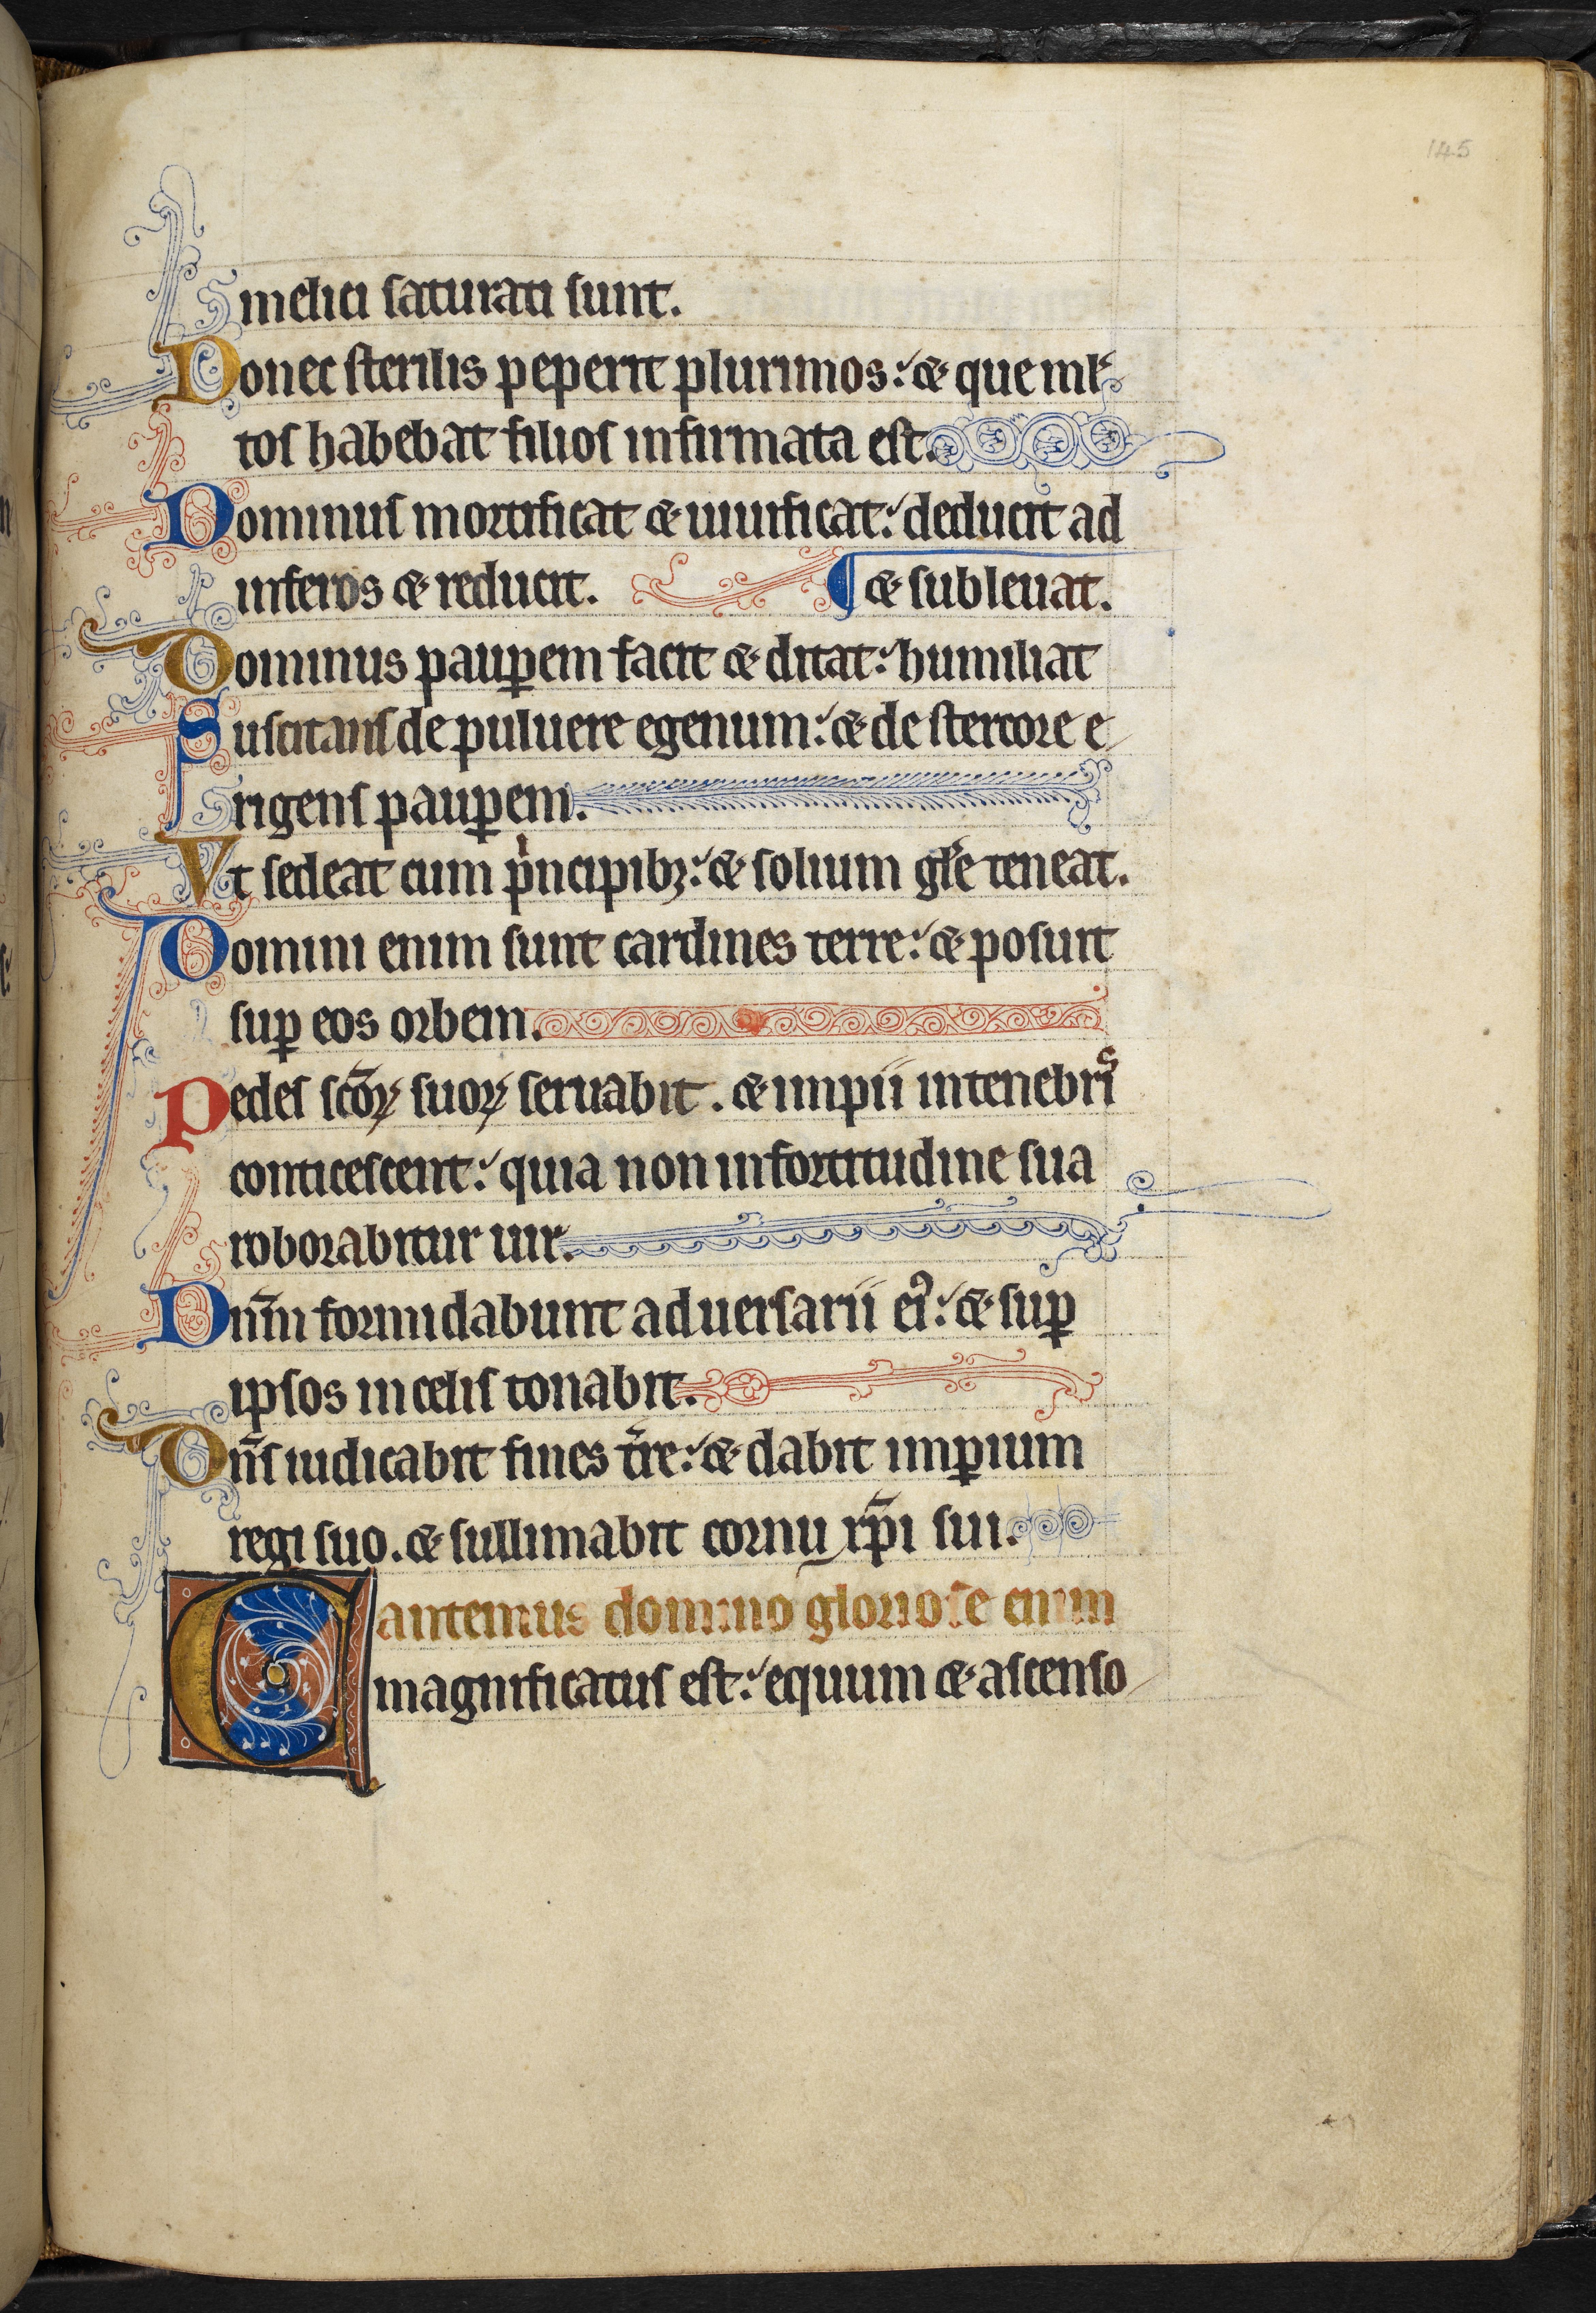 145
melici saturati sunt.
Donec sterilis peperit plurimos: & que ml̕
tos habebat filios infirmata est.
Dominus mortificat & uiuificat: deducit ad
inferos & reducit. & subleuat.
Dominus paup̲em facit & ditat: humiliat
Suscitans de puluere egenum: & de stercore e
rigens paup̲em.
Vt sedeat cum pⁱncipibꝫ: & solium gl̕e teneat.
Domini enim sunt cardines terre: & posuit
suꝑ eos orbem.
Pedes scṓꝝ suoꝝ seruabit. & impii in tenebrⁱˢ
conticescent: quia non in fortitudine sua
roborabitur uir.
Dn̄m formidabunt aduersarii eiꝰ: & suꝑ
ipsos in celis tonabit.
Dn̄s iudicabit fines t̄re: & dabit imꝑium
regi suo. & sullimabit cornu xp̄i sui.
Cantemus domino gloriose enim
magnificatus est: equum & ascenso